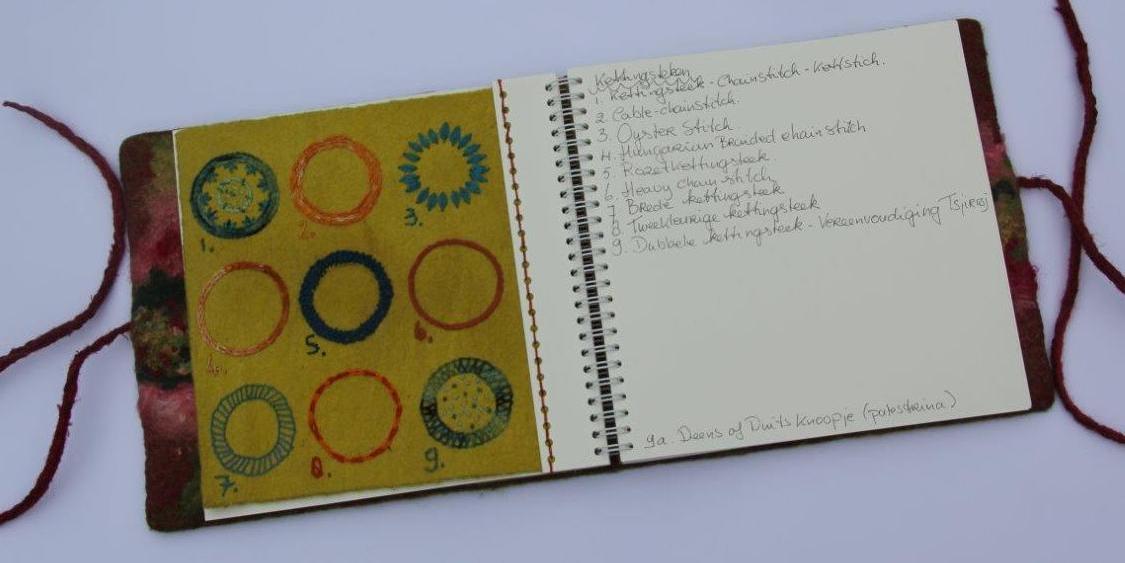 1.
2.
3.
4.
5.
6.
7.
8.
9.
Kettingsteken
1. Kettingsteek - Chainstitch - Kettstich.
2. Cable-chainstitch.
3. Oyster Stitch
4. Hungarian Braided chainstitch
5. Rozetkettingsteek
6. Heavy chain stitch
7 Brede kettingsteek
8. Tweekleurige kettingsteek
9. Dubbele kettingsteek - Vereenvoudiging
9a. Deens of Duits Knoopje (palestrina)